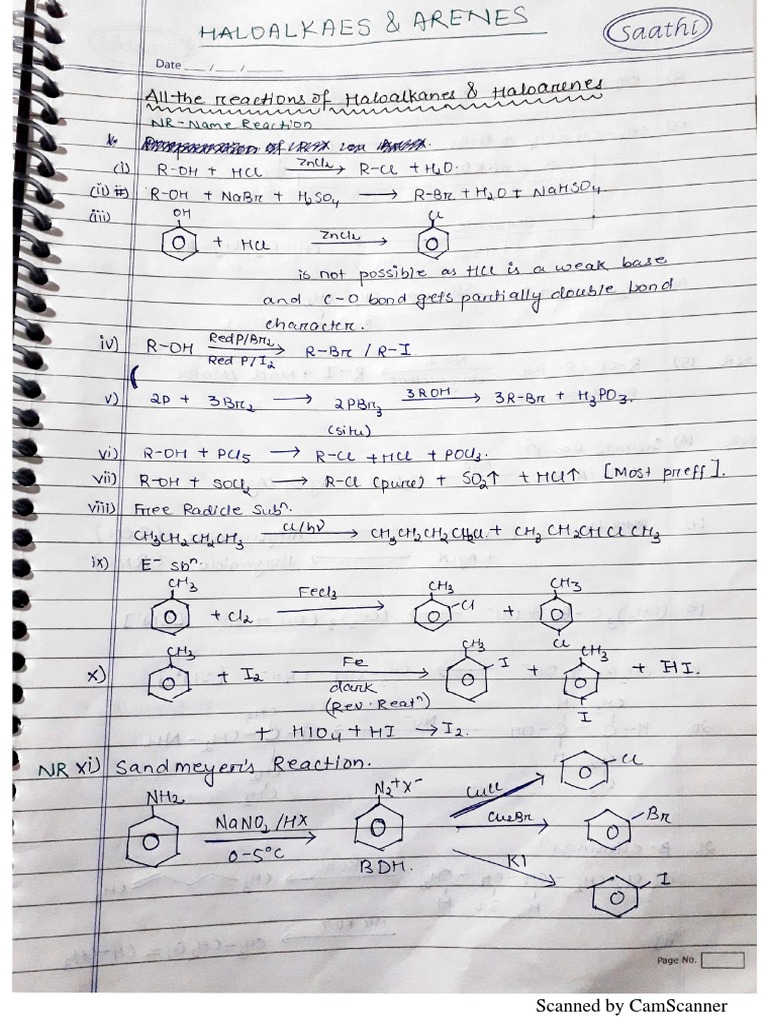 HALOALKAES & ARENES
Saathi
Date __/__/____
All the reactions of Haloalkanes & Haloarenes
NR-Name Reaction
(i) R-OH + HCl ZnCl2 → R-Cl + H2O.
(ii) R-OH + NaBr + H2SO4 → R-Br + H2O + NaHSO4
(iii) OH + HCl ZnCl2 → Cl
is not possible as HCl is a weak base
and C-O bond gets partially double bond
character.
iv) R-OH Red P/Br2 → R-Br / R-I
Red P/I2
v) 2P + 3Br2 → 2PBr3 3ROH → 3R-Br + H3PO3.
(situ)
vi) R-OH + PCl5 → R-Cl + HCl + POCl3.
vii) R-OH + SOCl2 → R-Cl (pure) + SO2↑ + HCl↑ [Most preff].
viii) Free Radicle Subn.
CH3CH2CH2CH3 Cl/hν → CH3CH2CH2CH2Cl + CH3CH2CHClCH3
ix) E- Sbn.
CH3 + Cl2 FeCl3 → CH3 Cl + CH3 Cl
x) CH3 + I2 Fe → CH3 I + CH3 I + HI.
dark
(Rev. Reatn)
+ HIO4 + HI → I2.
NR xi) Sandmeyer's Reaction.
NH2 NaNO2/HX → N2+X- CuCl Cl
0-5°C Cu2Br Br
BDH. KI I
Page No.
Scanned by CamScanner